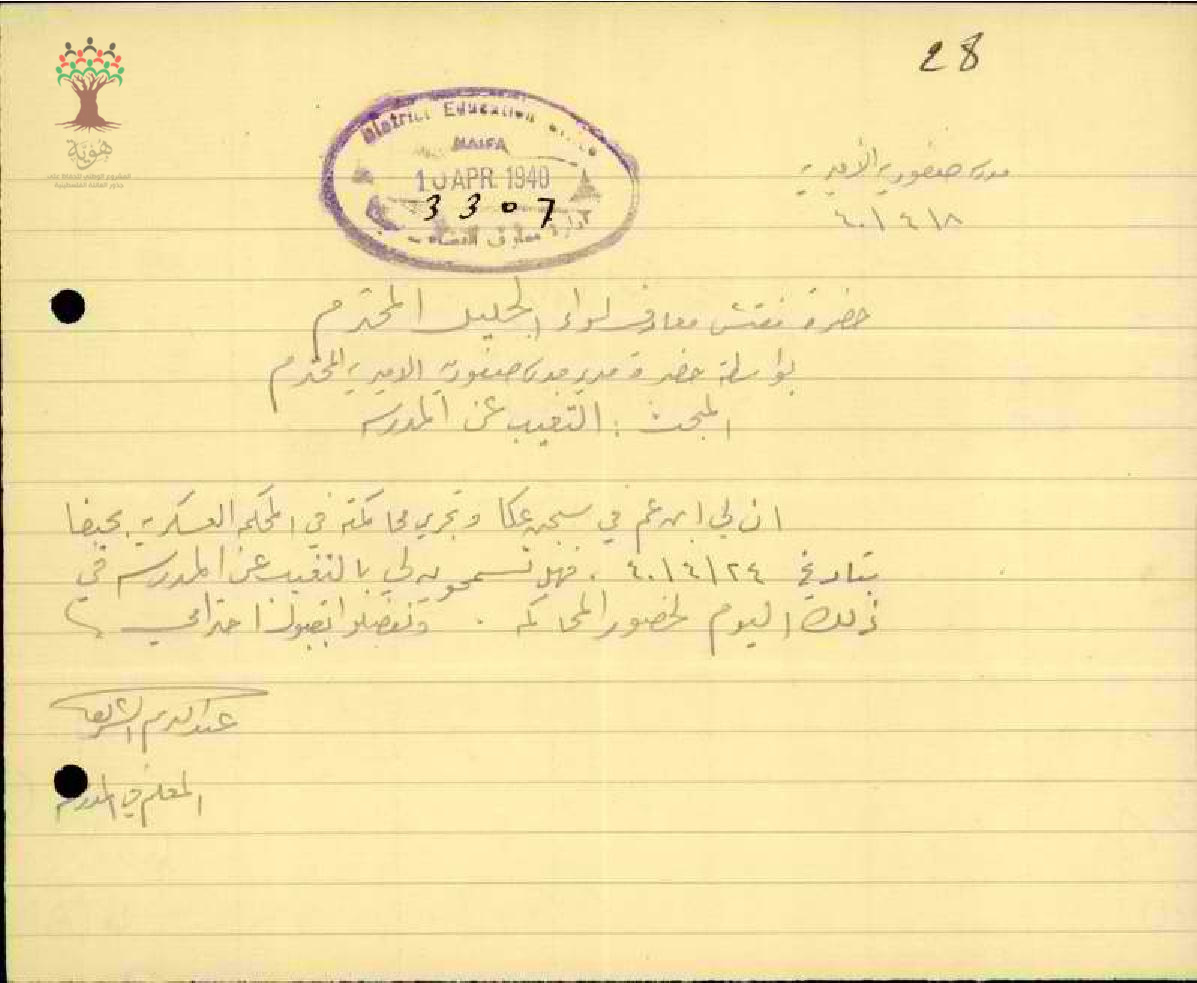 28
هوية
المشروع الوطني للحفاظ على
جذور العائلة الفلسطينية
District Education
HAIFA
10 APR. 1940
3307
ادارة معارف
مدرسة صفورية الأميرية
٤٠/٤/٨
حضرة مفتش معارف لواء الجليل المحترم
بواسطة حضرة مدير مدرسة صفورية الاميرية المحترم
المبحث : التغيب عن المدرسة
ان لي ابن عم في سجن عكا وتجري محاكمته في المحكمة العسكرية بحيفا
بتاريخ ٤٠/٤/٢٤ . فهل تسمحون لي بالتغيب عن المدرسة في
ذلك اليوم لحضور المحاكمة . وتفضلوا بقبول احترامي
عبد الكريم
المعلم في المدرسة